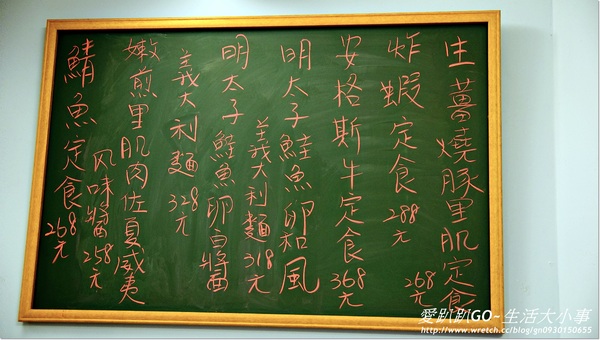 生薑燒豚里肌定食
268元
炸蝦定食 288元
安格斯牛定食 368元
明太子鮭魚卵和風
義大利麵 318元
明太子鮭魚卵白醬
義大利麵 328元
嫩煎里肌肉佐夏威夷
風味醬 258元
鯖魚定食 268元
愛趴趴GO~生活大小事
http://www.wretch.cc/blog/gn0930150655